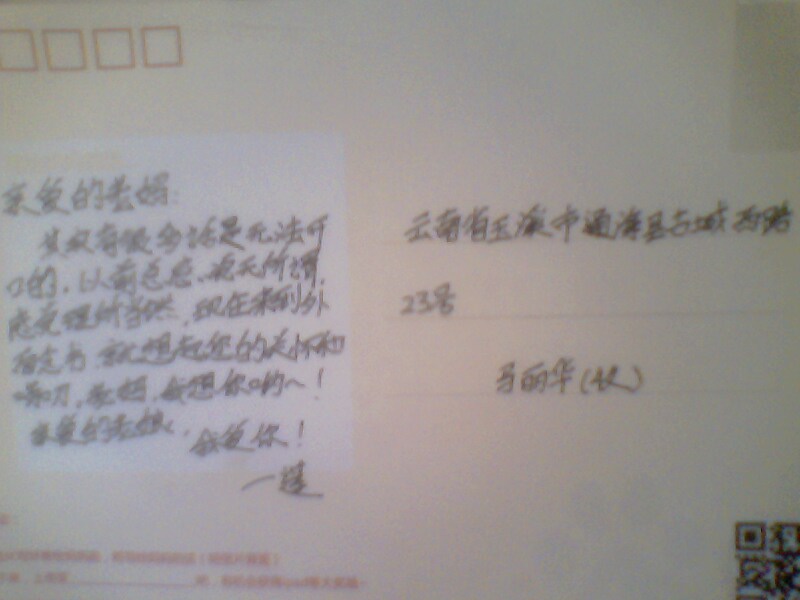 亲爱的老妈：
其实有很多话是无法开
口的，以前总感觉无所谓，
感觉理所当然，现在来到外
省念书，就想起您的关怀和
唠叨，老妈，我想你哟～！
亲爱的老娘，
我爱你！
一建
云南省玉溪市通海县古城西路
23号
马丽华(收)